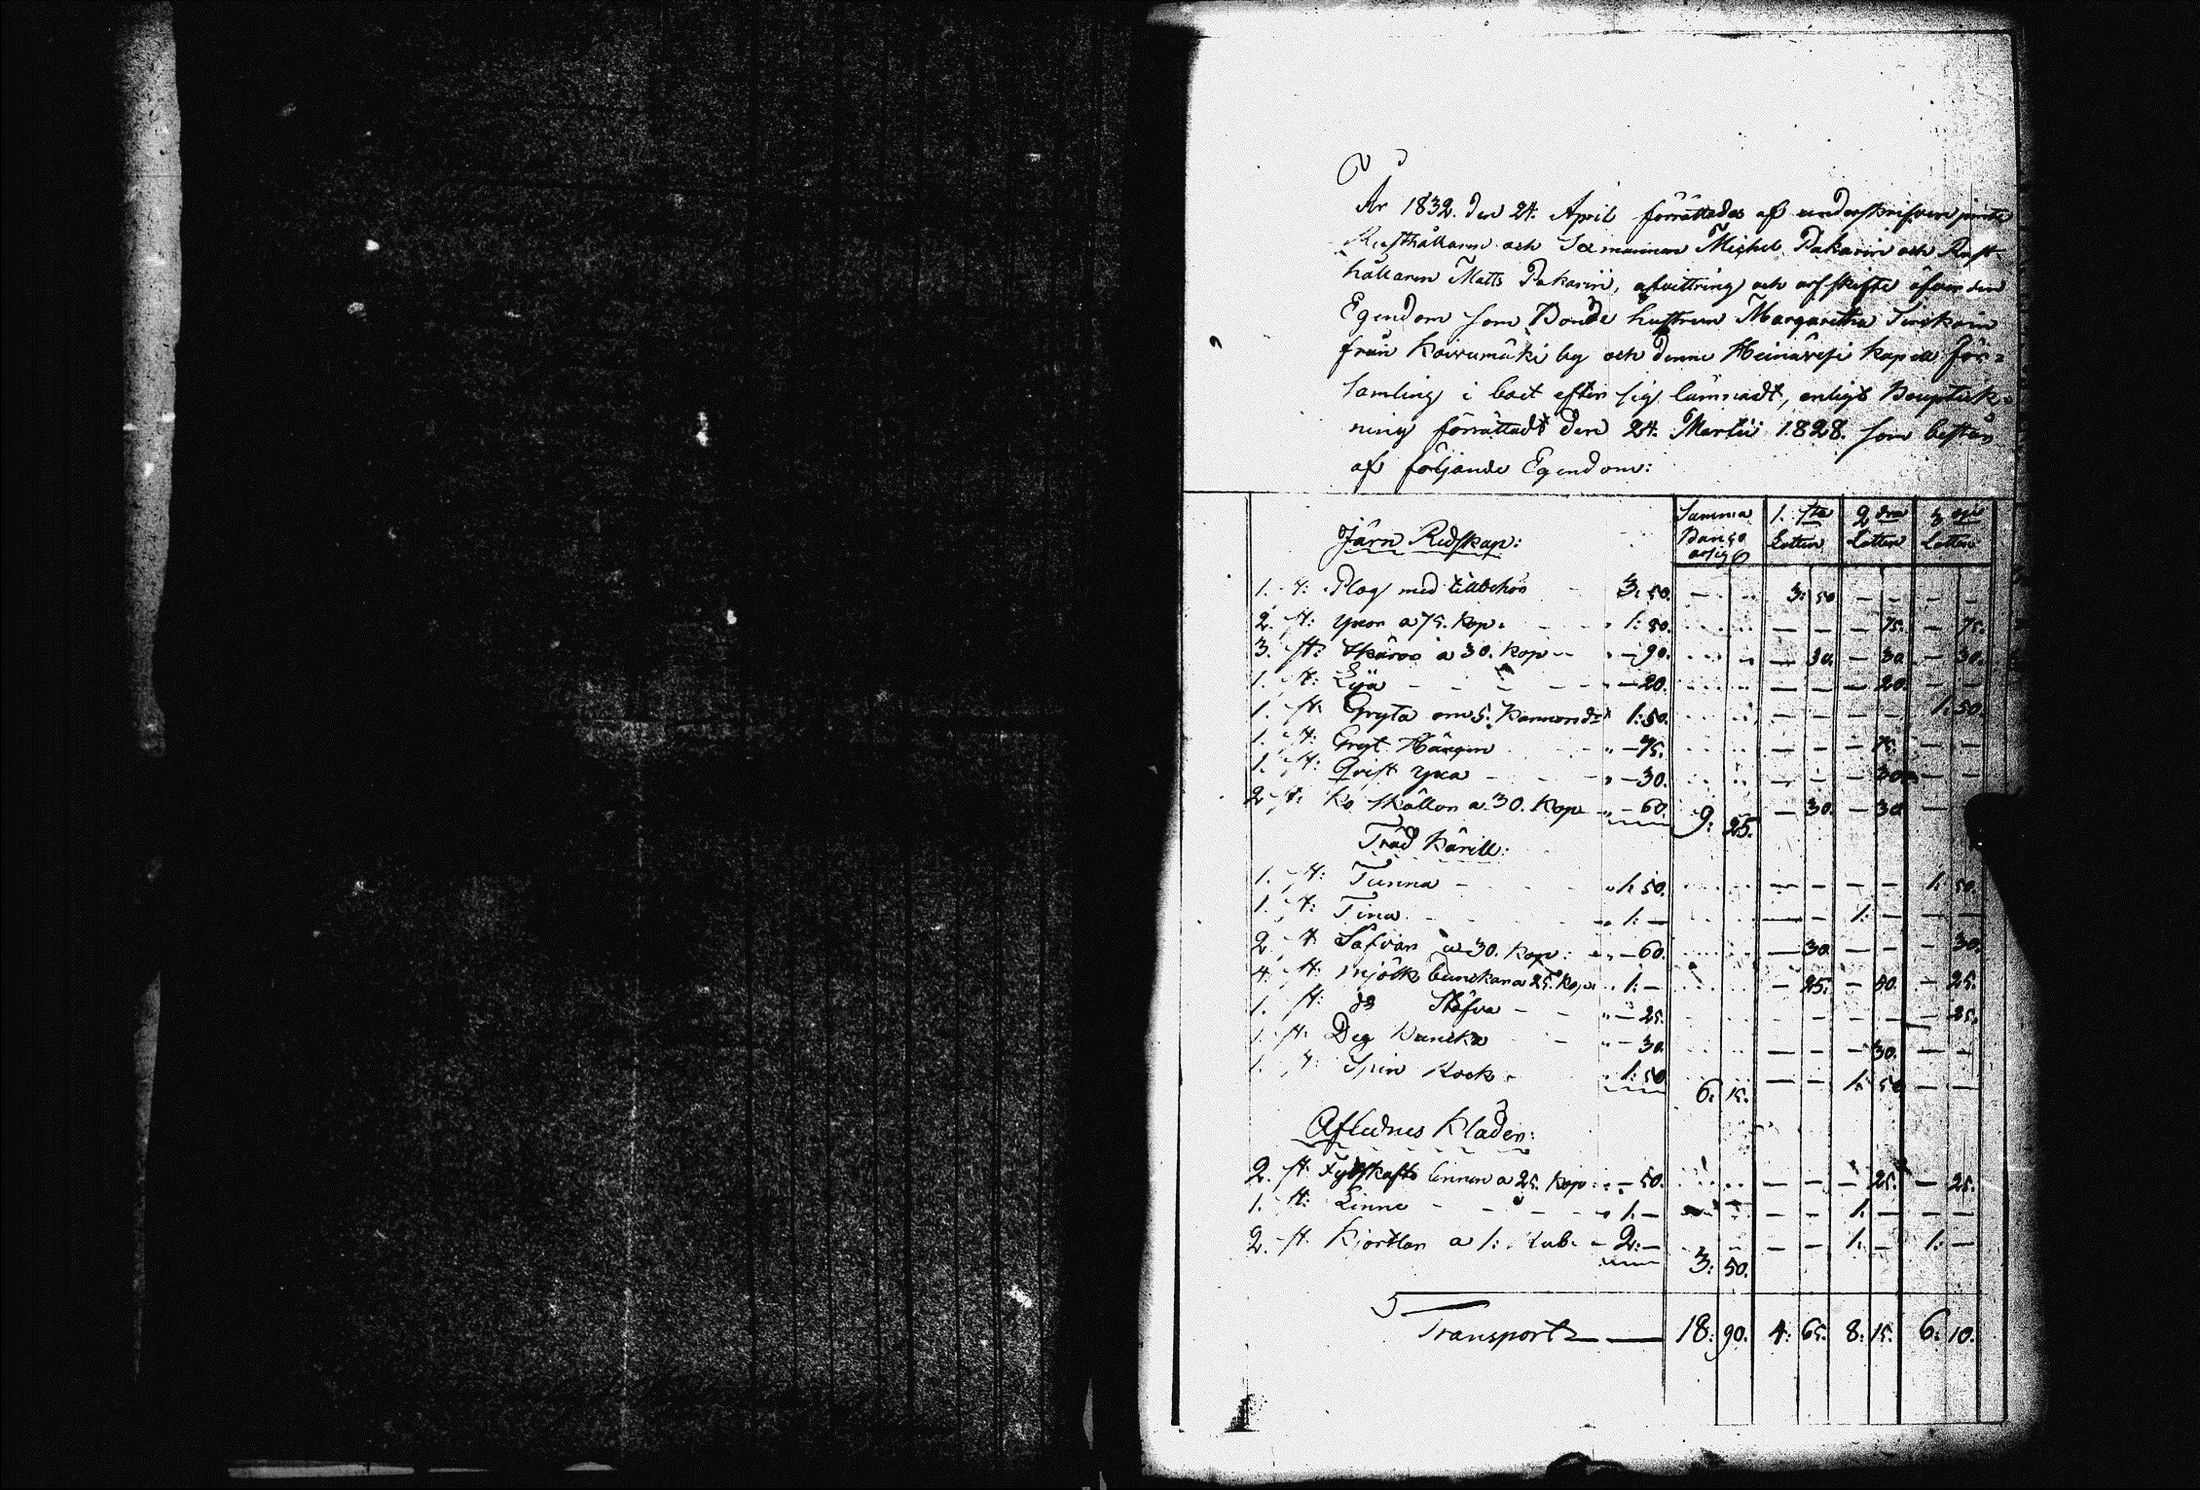 År 1832. den 24. April förrättades af underskrifven jemte
Rusthållaren och Sexmannen Michel Pakarin och Rust-
hållaren Matts Pakarin, afvittring och arfskifte öfver den
Egendom som Bonde hustrun Margaretha
från Koirumäki by och denne Heinävesi kapell för=
samling i boet efter sig lämnadt, enligt Boupteck=
ning förrättadt den 24. Martii 1828. som består
af följande Egendom:
Järn Redskap: Summa 1. sta Lotten 2 dra Lotten 3 dje Lotten
1. st: Plog med tillbehör 3: 50. — 3: 50 — — — —
2. st: yxor a 75. kop. 1: 50. — — — 75. — 75.
3. st: skäror a 30. kop — 90. — 30. — 30. — 30.
1. st: Lija — 20. — — — 20. — —
1. st: Gryta om 5. 1: 50. 1: 50.
1. st: Gryt Hängen — 75. — — — 75. — —
1. st: Qvist yxa — 30. — — — 30. — —
2 st: Ko skällor a 30. kop — 60. 9: 25. — 30. — 30 —
Träd Kärill:
1. st: Tunna 1: 50. — — — — 1: 50.
1. st: Tina 1: — — — 1: — — —
2 st: Såfvar a 30. kop: — 60. — 30. — — — 30.
4. st: mjölk bunckar a 25. kop 1: — — 25. — 50. — 25.
1. st: do Stäfva — 25. — — — — — 25.
1. st: Deg Buncka — 30. — — — 30. — —
1. st: Spin Rock 1: 50 6: 15. — — 1: 50 — —
Aflednes Kläder:
2. st: linnen a 25. kop: — 50. — — — 25. — 25.
1. st: Linne 1: — — — 1: — — —
2. st: Kjortlar a 1: Rub. 2: — 3: 50. — — 1: — 1: —
Transport — 18: 90. 4: 65. 8: 15. 6: 10.